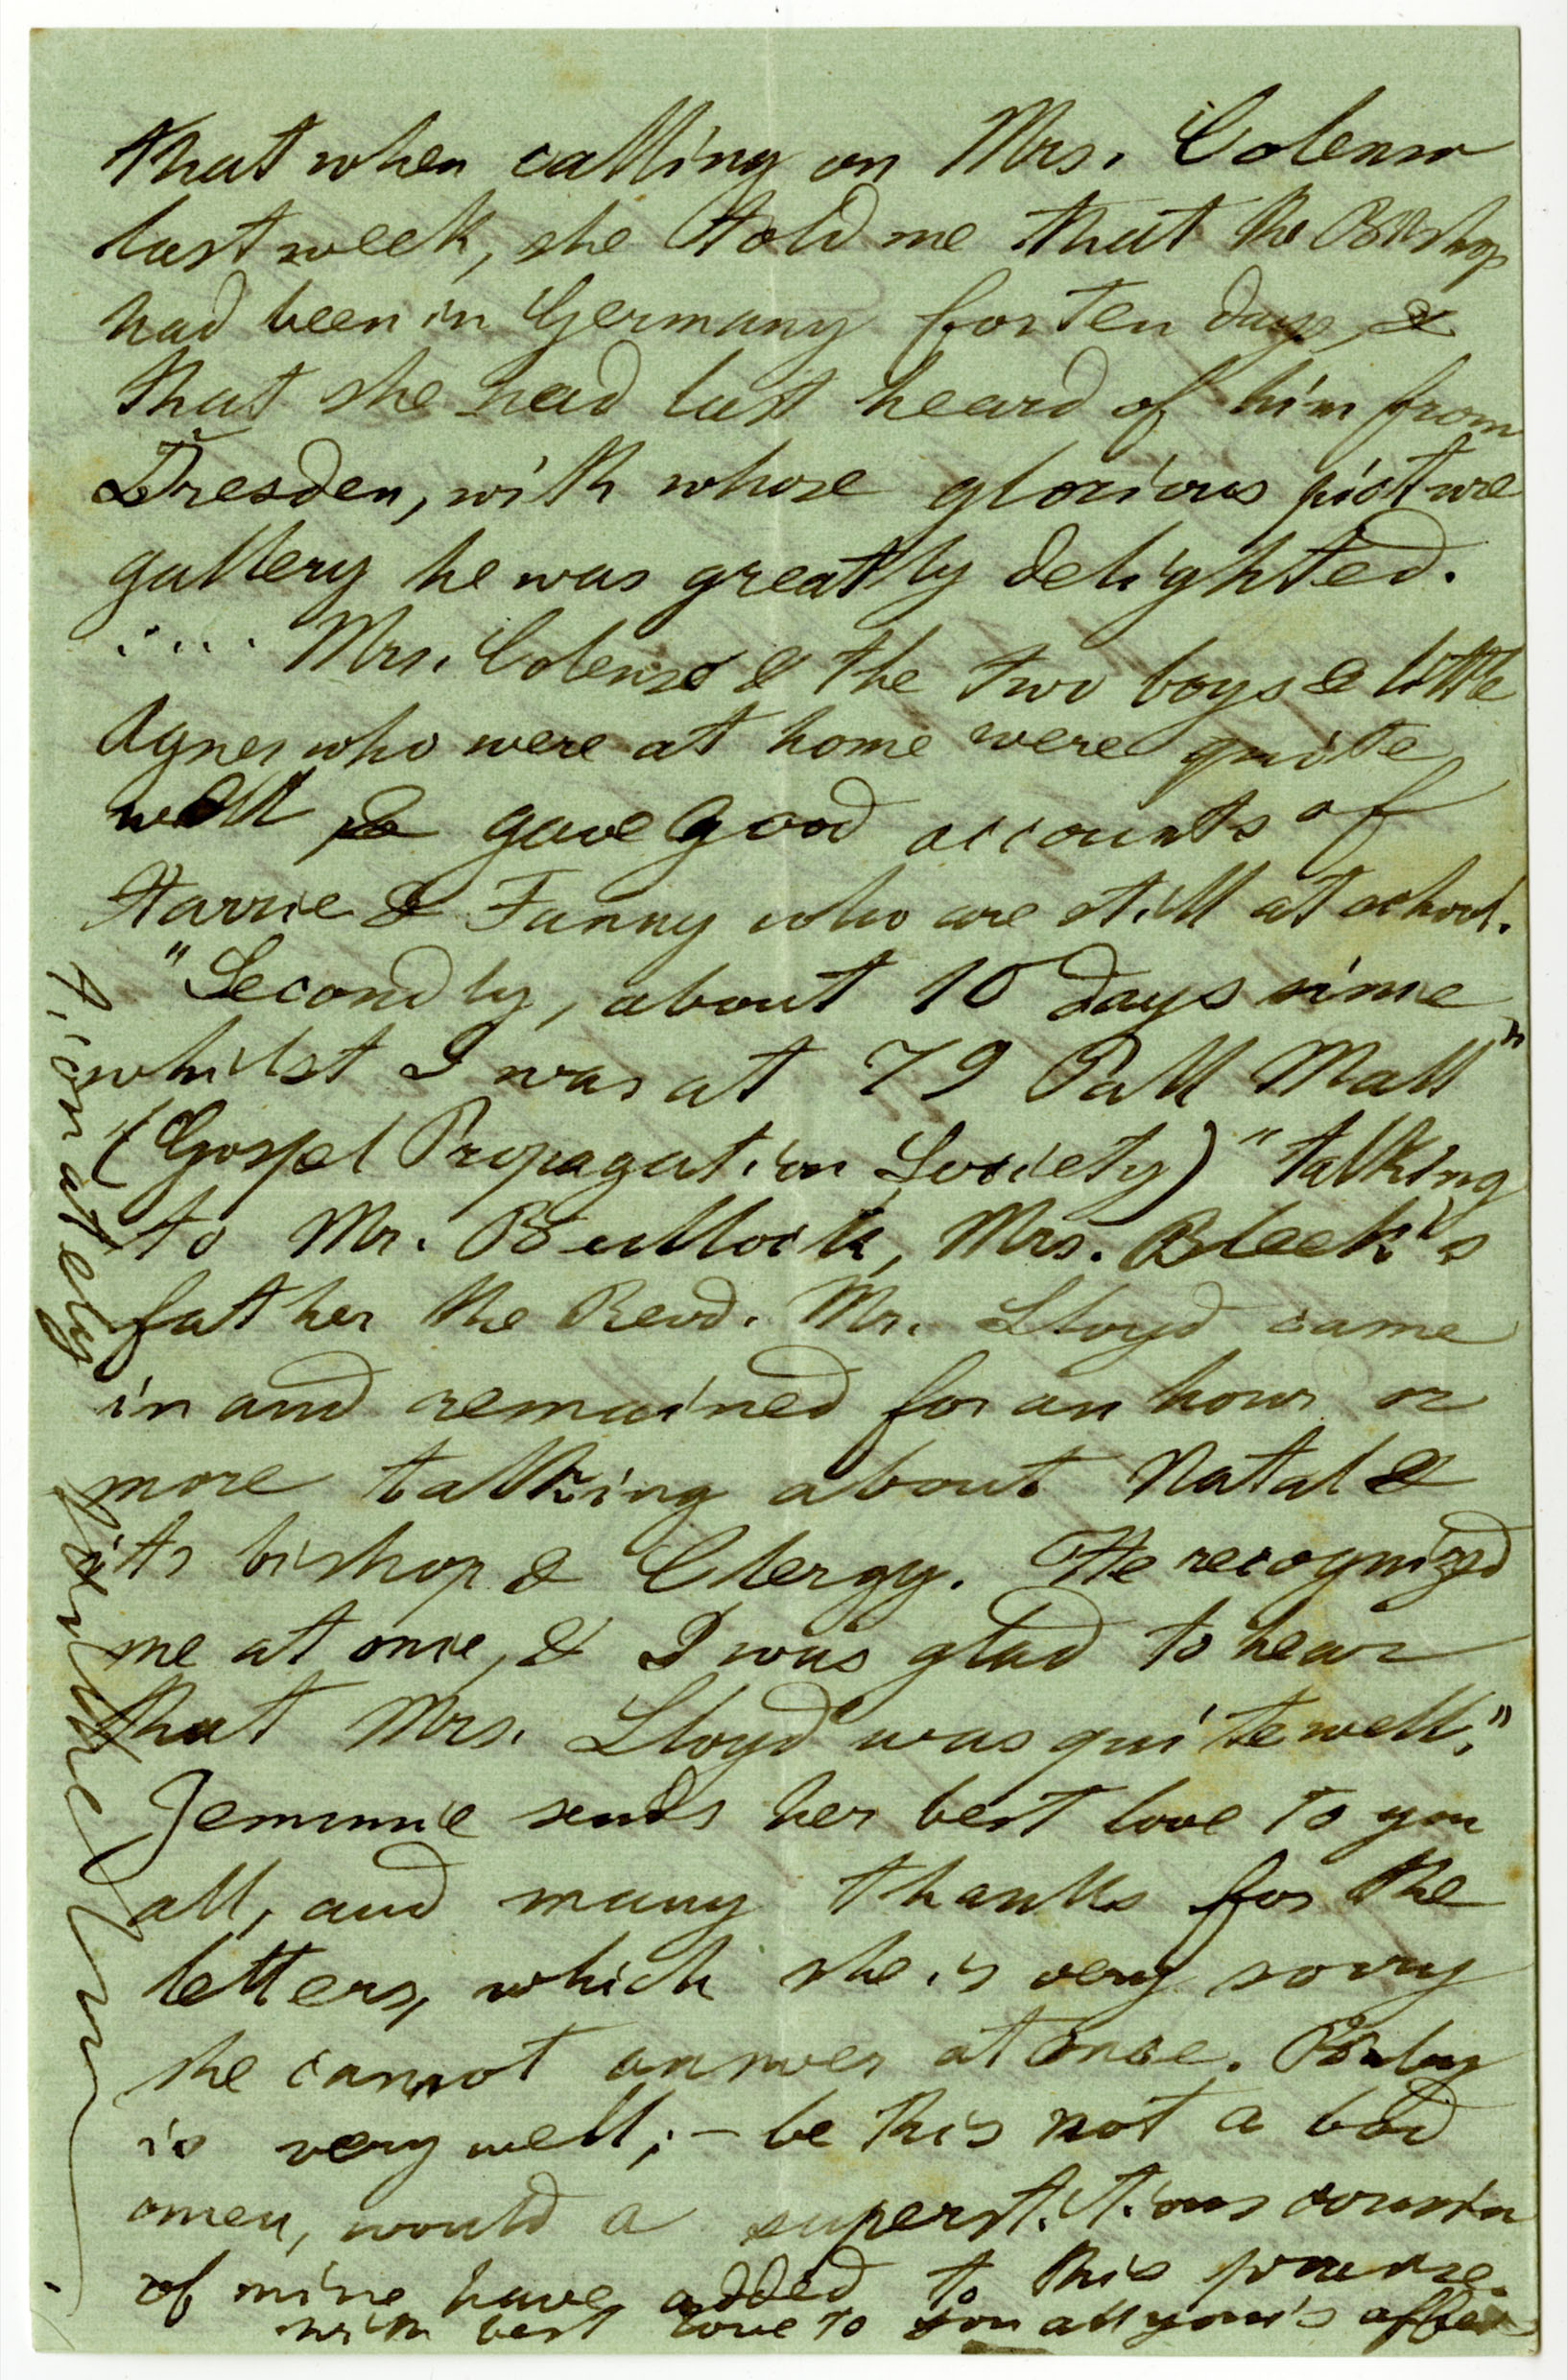 that when calling on Mrs. Colenso
last week, she told me that the Bishop
had been in Germany for ten days, &
that she had last heard of him from
Dresden, with whose glorious picture
gallery he was greatly delighted.
.... Mrs. Colenso & the two boys & little
Agnes who were at home were quite
well & gave good accounts of
Harrie & Fanny who are still at school.
"Secondly, about 10 days since
whilst I was at 79 Pall Mall"
(Gospel Propagation Society) "talking
to Mr. Bullock, Mrs. Bleek's
father the Revd. Mr. Lloyd came
in and remained for an hour or
more talking about Natal &
its bishop & Clergy. He recognized
me at once, & I was glad to hear
that Mrs. Lloyd was quite well."
Jemmie sends her best love to you
all, and many thanks for the
letters, which she is very sorry
she cannot answer at once. Baby
is very well; – be this not a bad
omen, would a superstitious cousin
of mine have added to this
with best love to you all yours affec
tionately